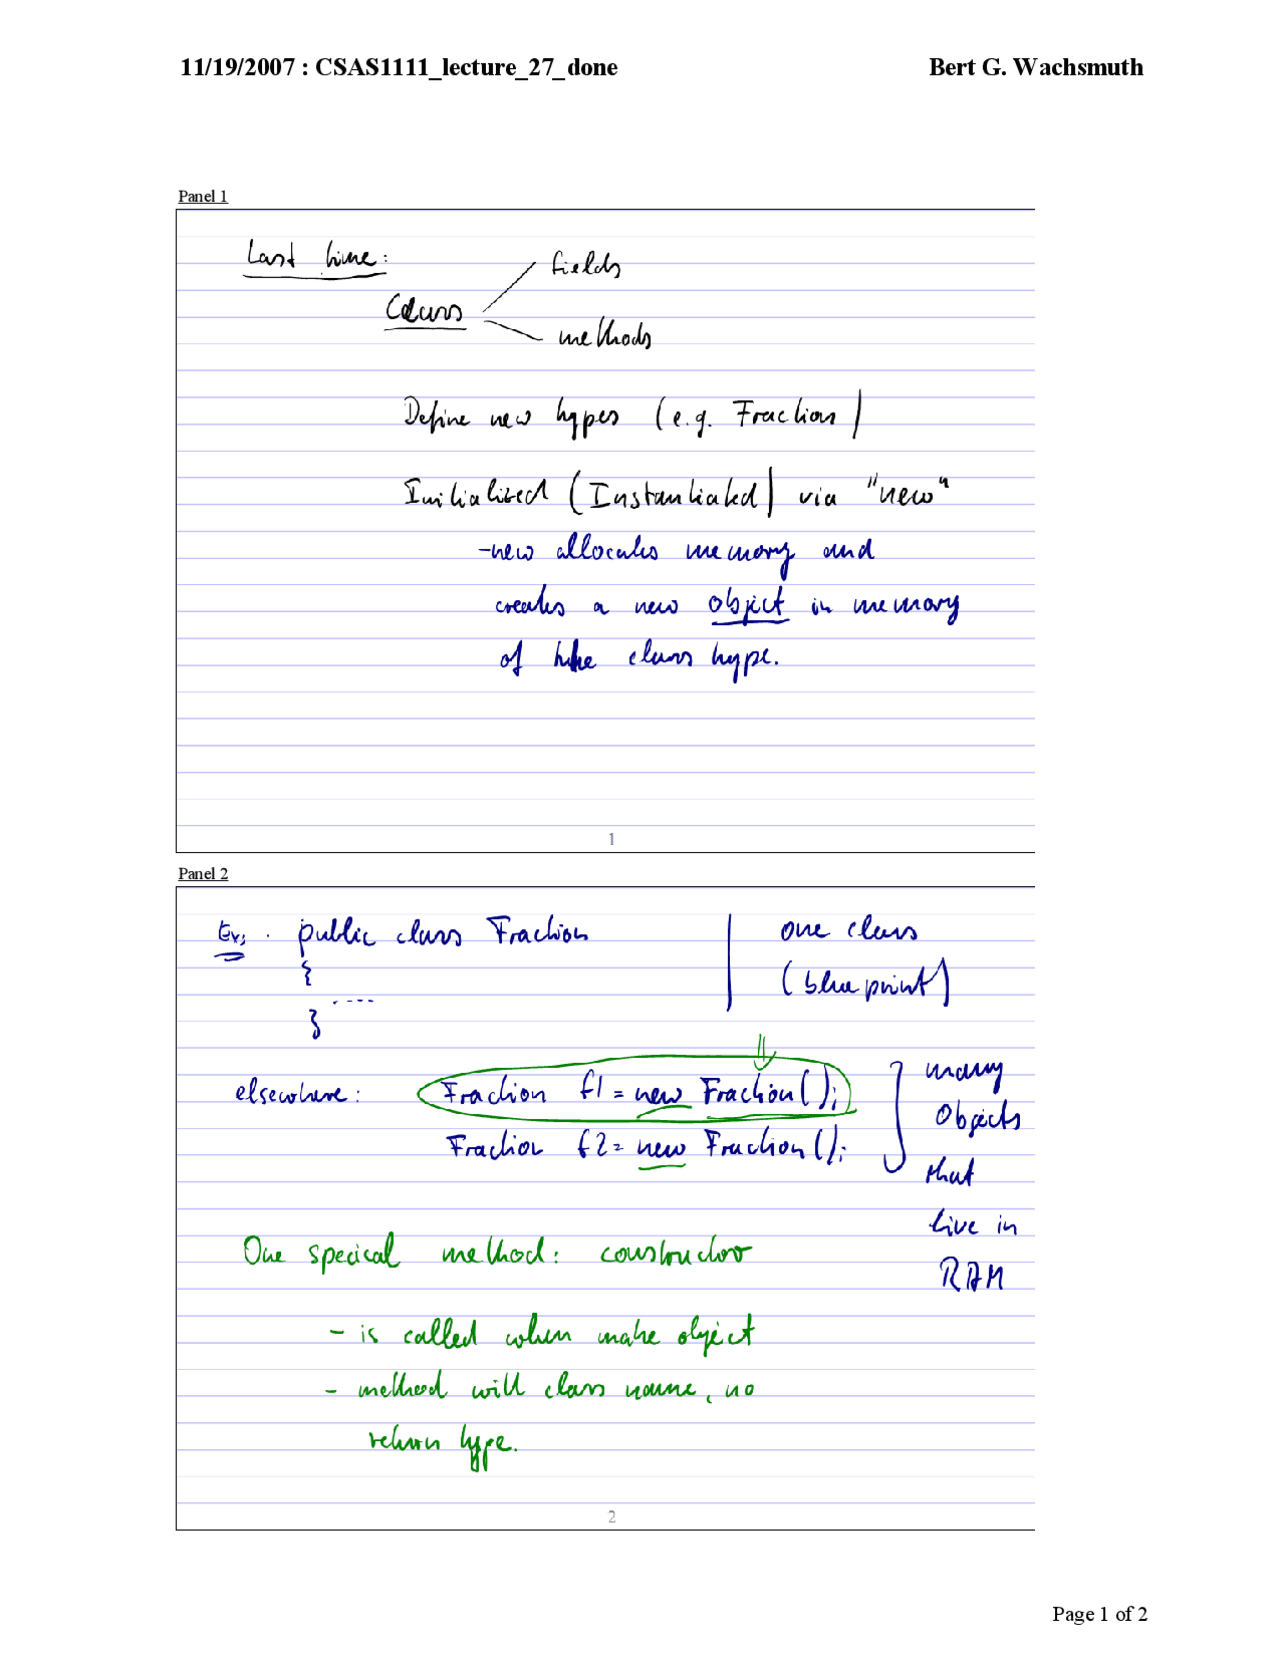 11/19/2007 : CSAS1111_lecture_27_done Bert G. Wachsmuth
Panel 1
Last time:
Class
fields
methods
Define new types (e.g. Fraction)
Initialized (Instantiated) via "new"
-new allocates memory and
creates a new object in memory
of the class type.
1
Panel 2
Ex: public class Fraction
{
....
}
one class
(blue print)
elsewhere: Fraction f1 = new Fraction();
Fraction f2 = new Fraction();
many
Objects
that
live in
RAM
One specical method: constructor
- is called when make object
- method will class name, no
return type.
2
Page 1 of 2